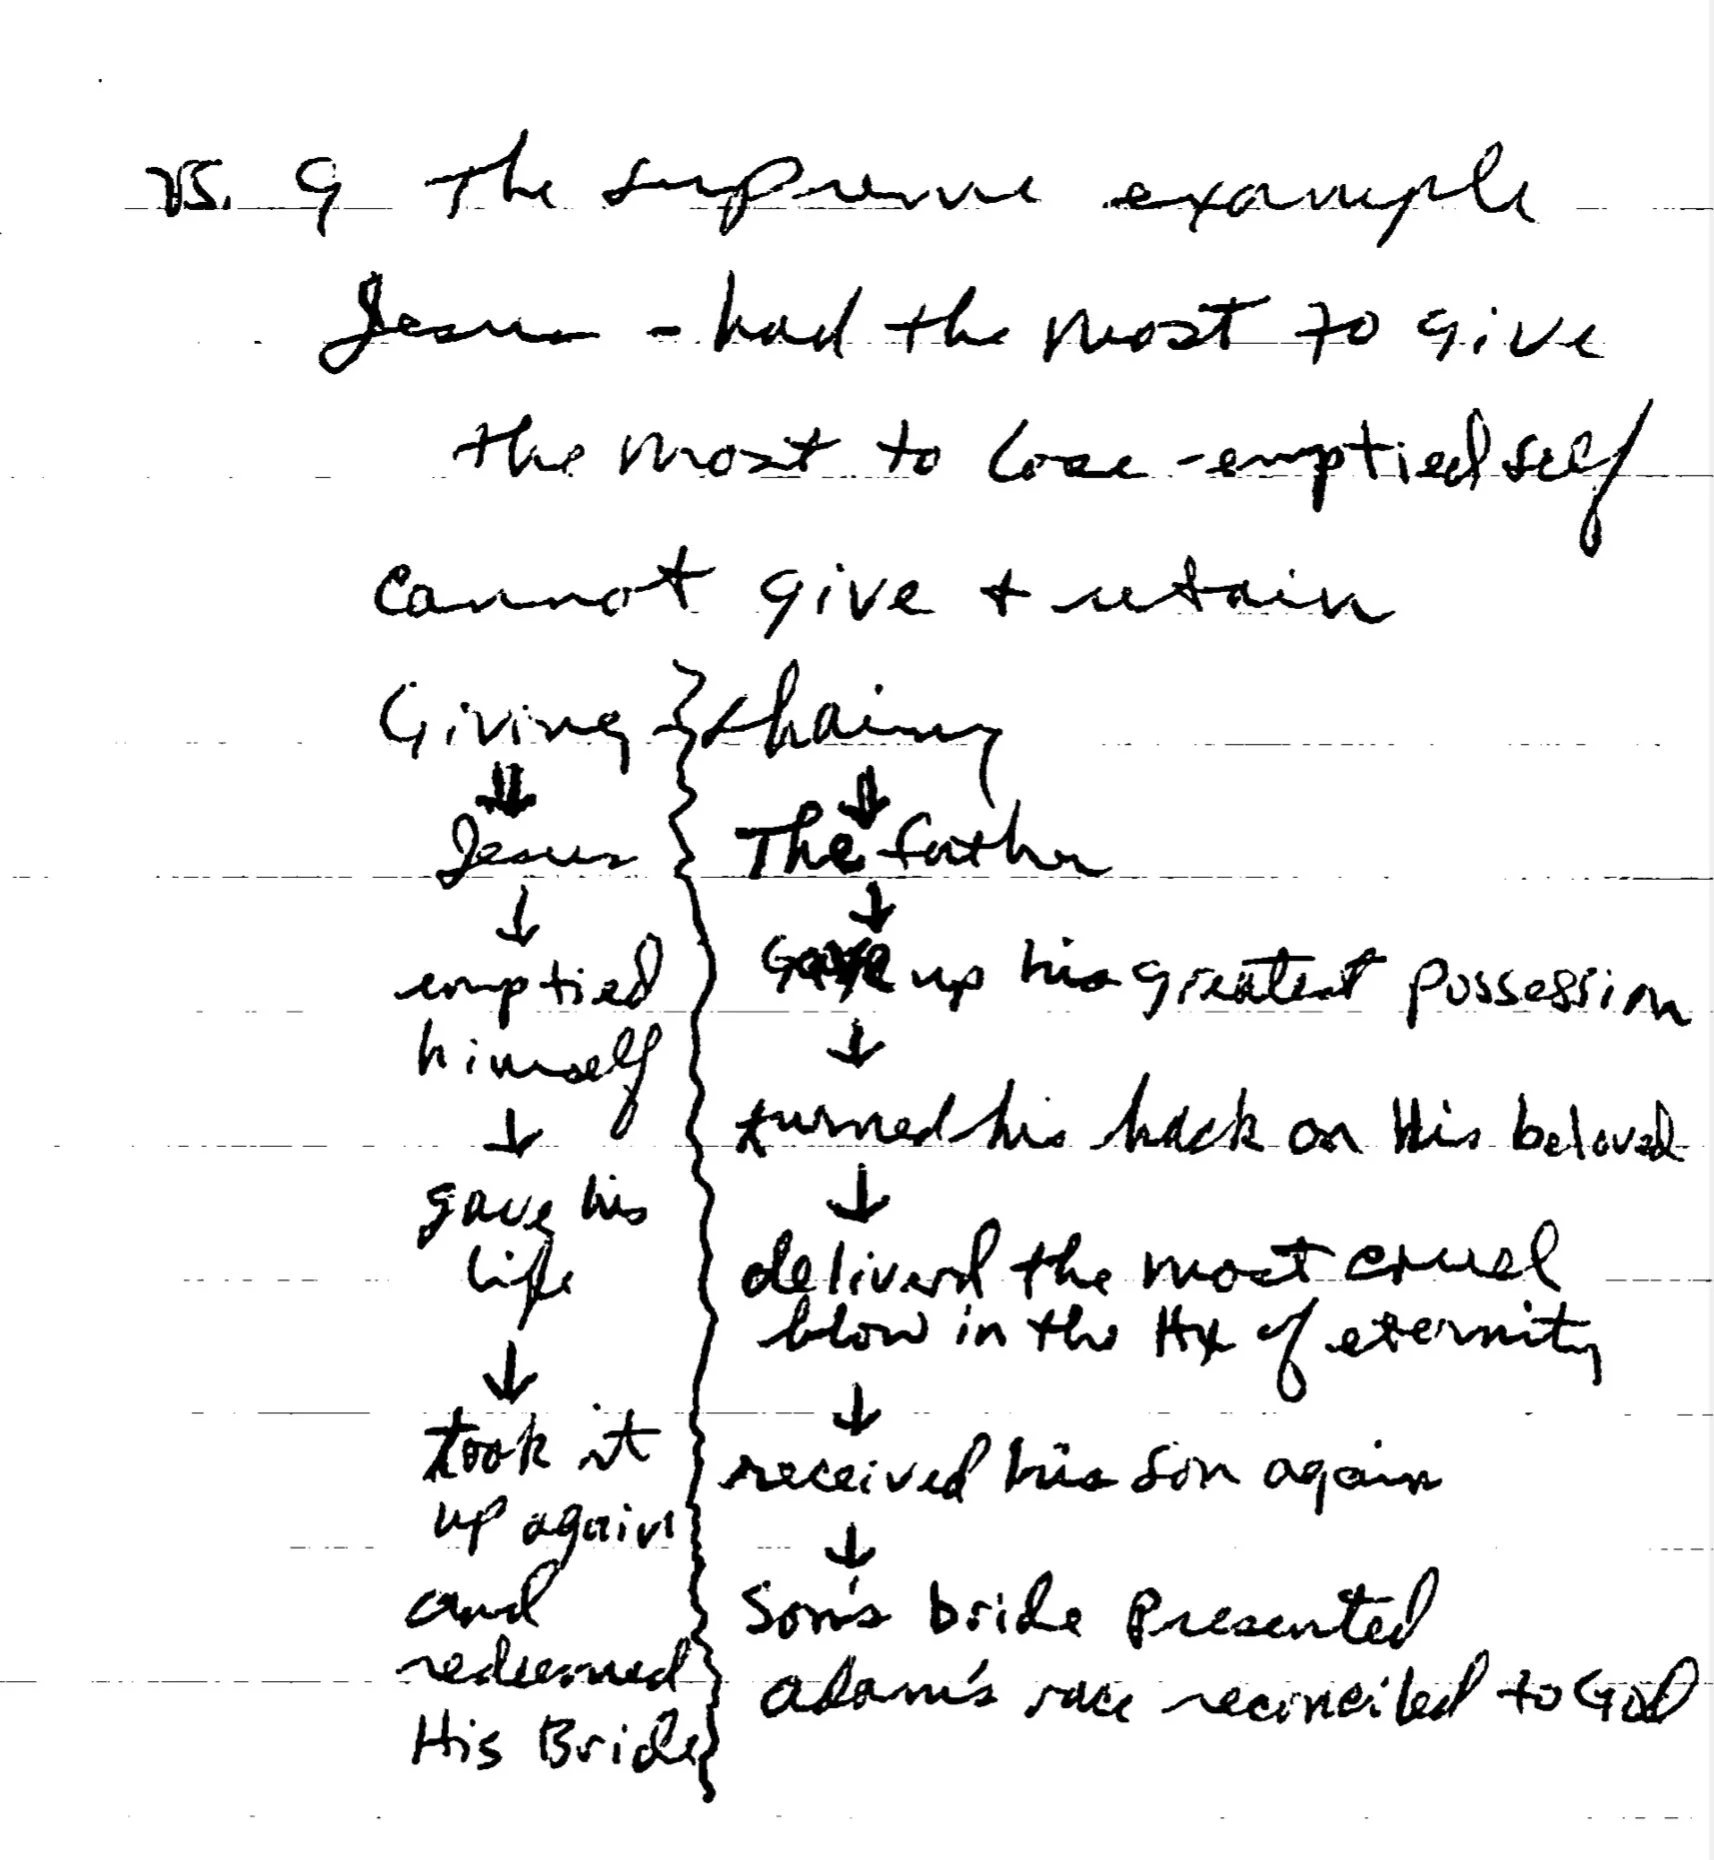 vs. 9 The supreme example
Jesus - had the most to give
the most to lose - emptied self
cannot give + retain
Giving } sharing
↓ ↓
Jesus
↓
emptied
himself
↓
gave his
life
↓
took it
up again
and
redeemed
His Bride
The father
↓
Gave up his greatest possession
↓
turned his back on His beloved
↓
delivered the most cruel
blow in the Hx of eternity
↓
received his son again
↓
Son's bride presented
adam's race reconciled to God